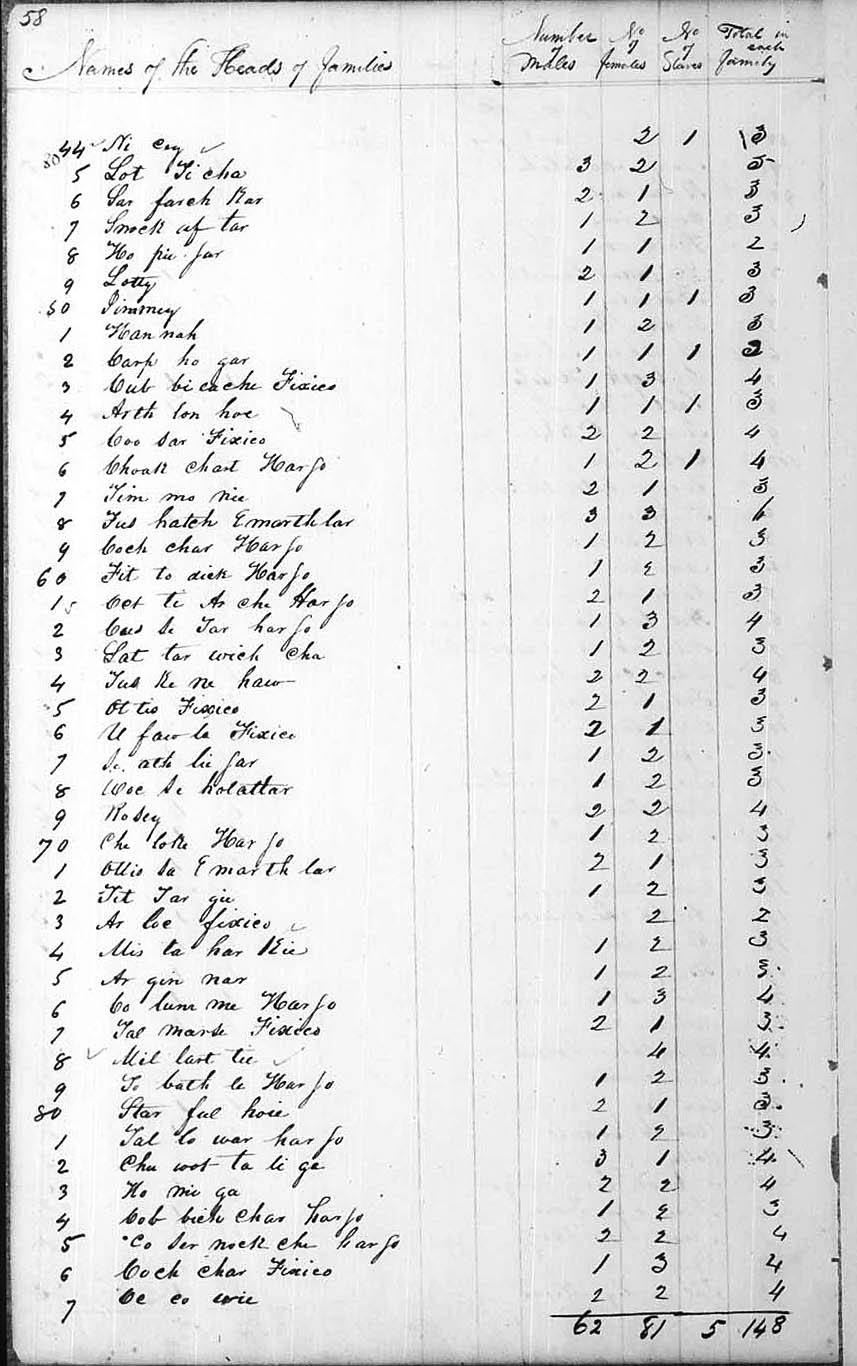 58
Names of the Heads of families Number of Males No of females No of Slaves Total in each family
80 44 Ni cey 2 1 3
5 Lot Ti cha 3 2 5
6 Sar farch Kar 2 1 3
7 Smock af tar 1 2 3
8 Ho pie gar 1 1 2
9 Lotty 2 1 3
50 Jimmey 1 1 1 3
1 Hannah 1 2 3
2 Carp ho gar 1 1 1 3
3 Cub bi cache Fixico 1 3 4
4 Arth lon hoe 1 1 1 3
5 Coo sar Fixico 2 2 4
6 Choak chart Harjo 1 2 1 4
7 Tim mo nie 2 1 3
8 Fus hatch Emarthlar 3 3 6
9 Coch char Harjo 1 2 3
60 Fit to dick Harjo 1 2 3
1 Oct te Ar che Harjo 2 1 3
2 Cus Se Tar harjo 1 3 4
3 Lat tar wich cha 1 2 3
4 Tus Ke ne haw 2 2 4
5 Ot tis Fixico 2 1 3
6 U faw la Fixico 2 1 3
7 Se ath lie gar 1 2 3
8 Woc se holattar 1 2 3
9 Rosey 2 2 4
70 Che loke Harjo 1 2 3
1 Ottis sa Emarthlar 2 1 3
2 Tit Tar gie 1 2 3
3 Ar loc fixico 2 2
4 Mis ta har Kie 1 2 3
5 Ar gin nar 1 2 3
6 Co lum me Harjo 1 3 4
7 Tal marse Fixico 2 1 3
8 Mil lart tie 4 4
9 To bath le Harjo 1 2 3
80 Star ful hoie 2 1 3
1 Tal lo war harjo 1 2 3
2 Chu wot ta li ge 3 1 4
3 Ho mi ga 2 2 4
4 Cob bich Char harjo 1 2 3
5 Co ser nock che harjo 2 2 4
6 Coch char Fixico 1 3 4
7 Oc co wie 2 2 4
62 81 5 148